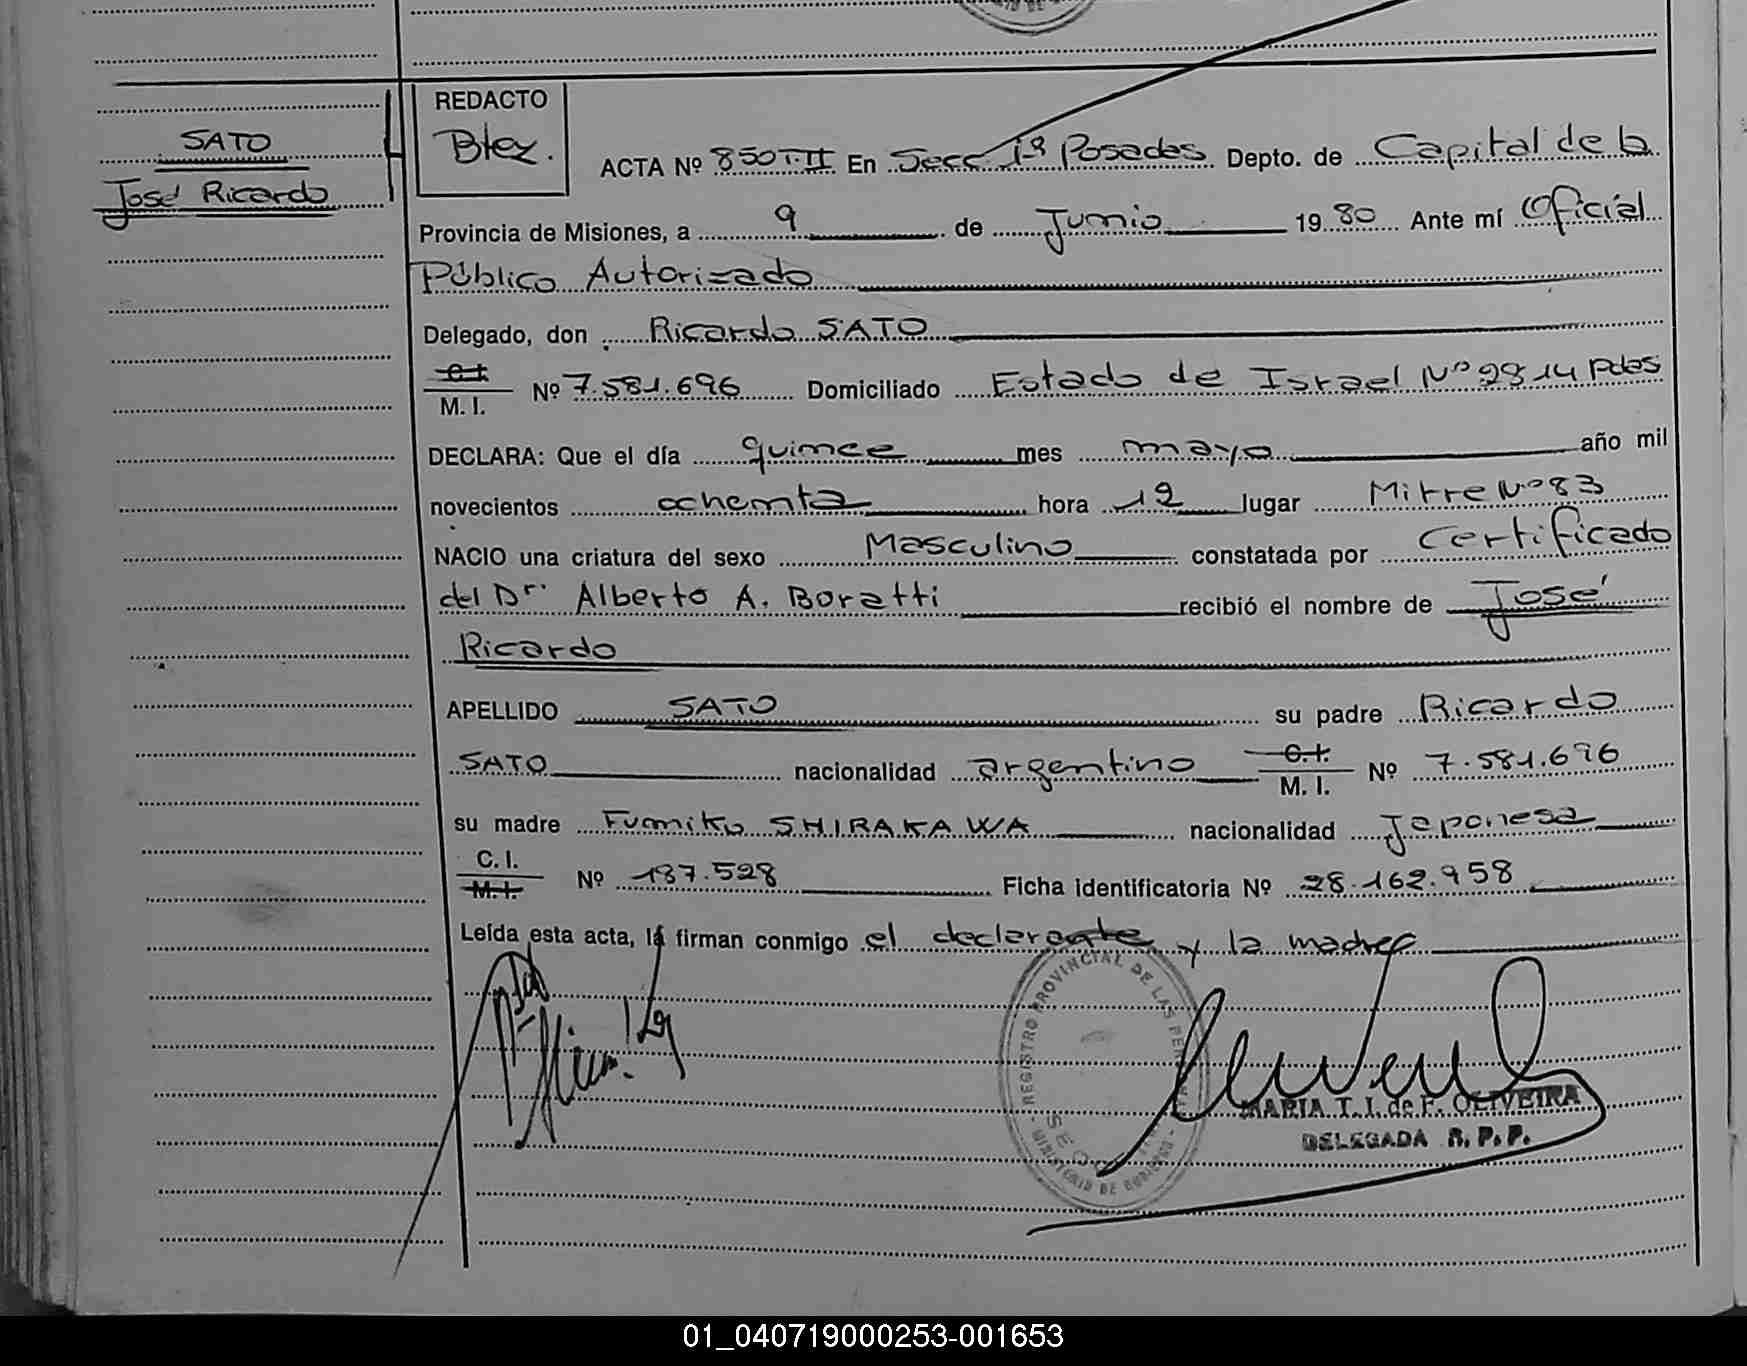 SATO
José Ricardo
REDACTO
ACTA Nº 850 T·II En Secc 1ª Posadas Depto. de Capital de la
Provincia de Misiones, a 9 de Junio 1980 Ante mí Oficial
Público Autorizado
Delegado, don Ricardo SATO
C.I. M. I. Nº 7.581.696 Domiciliado Estado de Israel Nº 2814 Pdas
DECLARA: Que el día quince mes mayo año mil
novecientos ochenta hora 12 lugar Mitre Nº 83
NACIO una criatura del sexo Masculino constatada por Certificado
del Dr. Alberto A. Boratti recibió el nombre de José
Ricardo
APELLIDO SATO su padre Ricardo
SATO nacionalidad argentino C.I. M. I. Nº 7.581.696
su madre Fumiko SHIRAKAWA nacionalidad Japonesa
C. I. M.I. Nº 187.528 Ficha identificatoria Nº 28.162.958
Leída esta acta, la firman conmigo el declarante y la madre
REGISTRO PROVINCIAL DE LAS
MINISTERIO DE GOBIERNO
MARIA T. I. de F. OLIVEIRA
DELEGADA R. P. P.
01_040719000253-001653